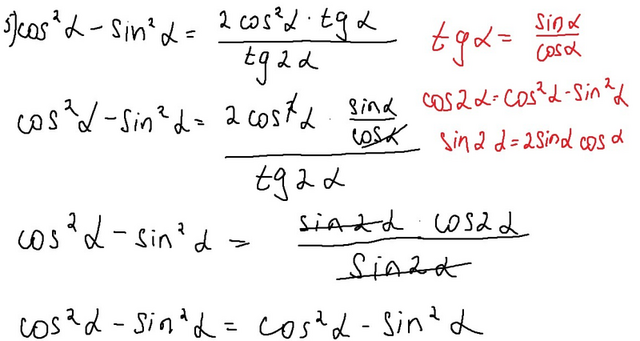 5) cos²α - sin²α = 2cos²α · tgα / tg2α
tgα = sinα / cosα
cos²α - sin²α = 2cos²α · sinα / cosα / tg2α
cos2α = cos²α - sin²α
sin2α = 2sinα cosα
cos²α - sin²α = sin2α · cos2α / sin2α
cos²α - sin²α = cos²α - sin²α